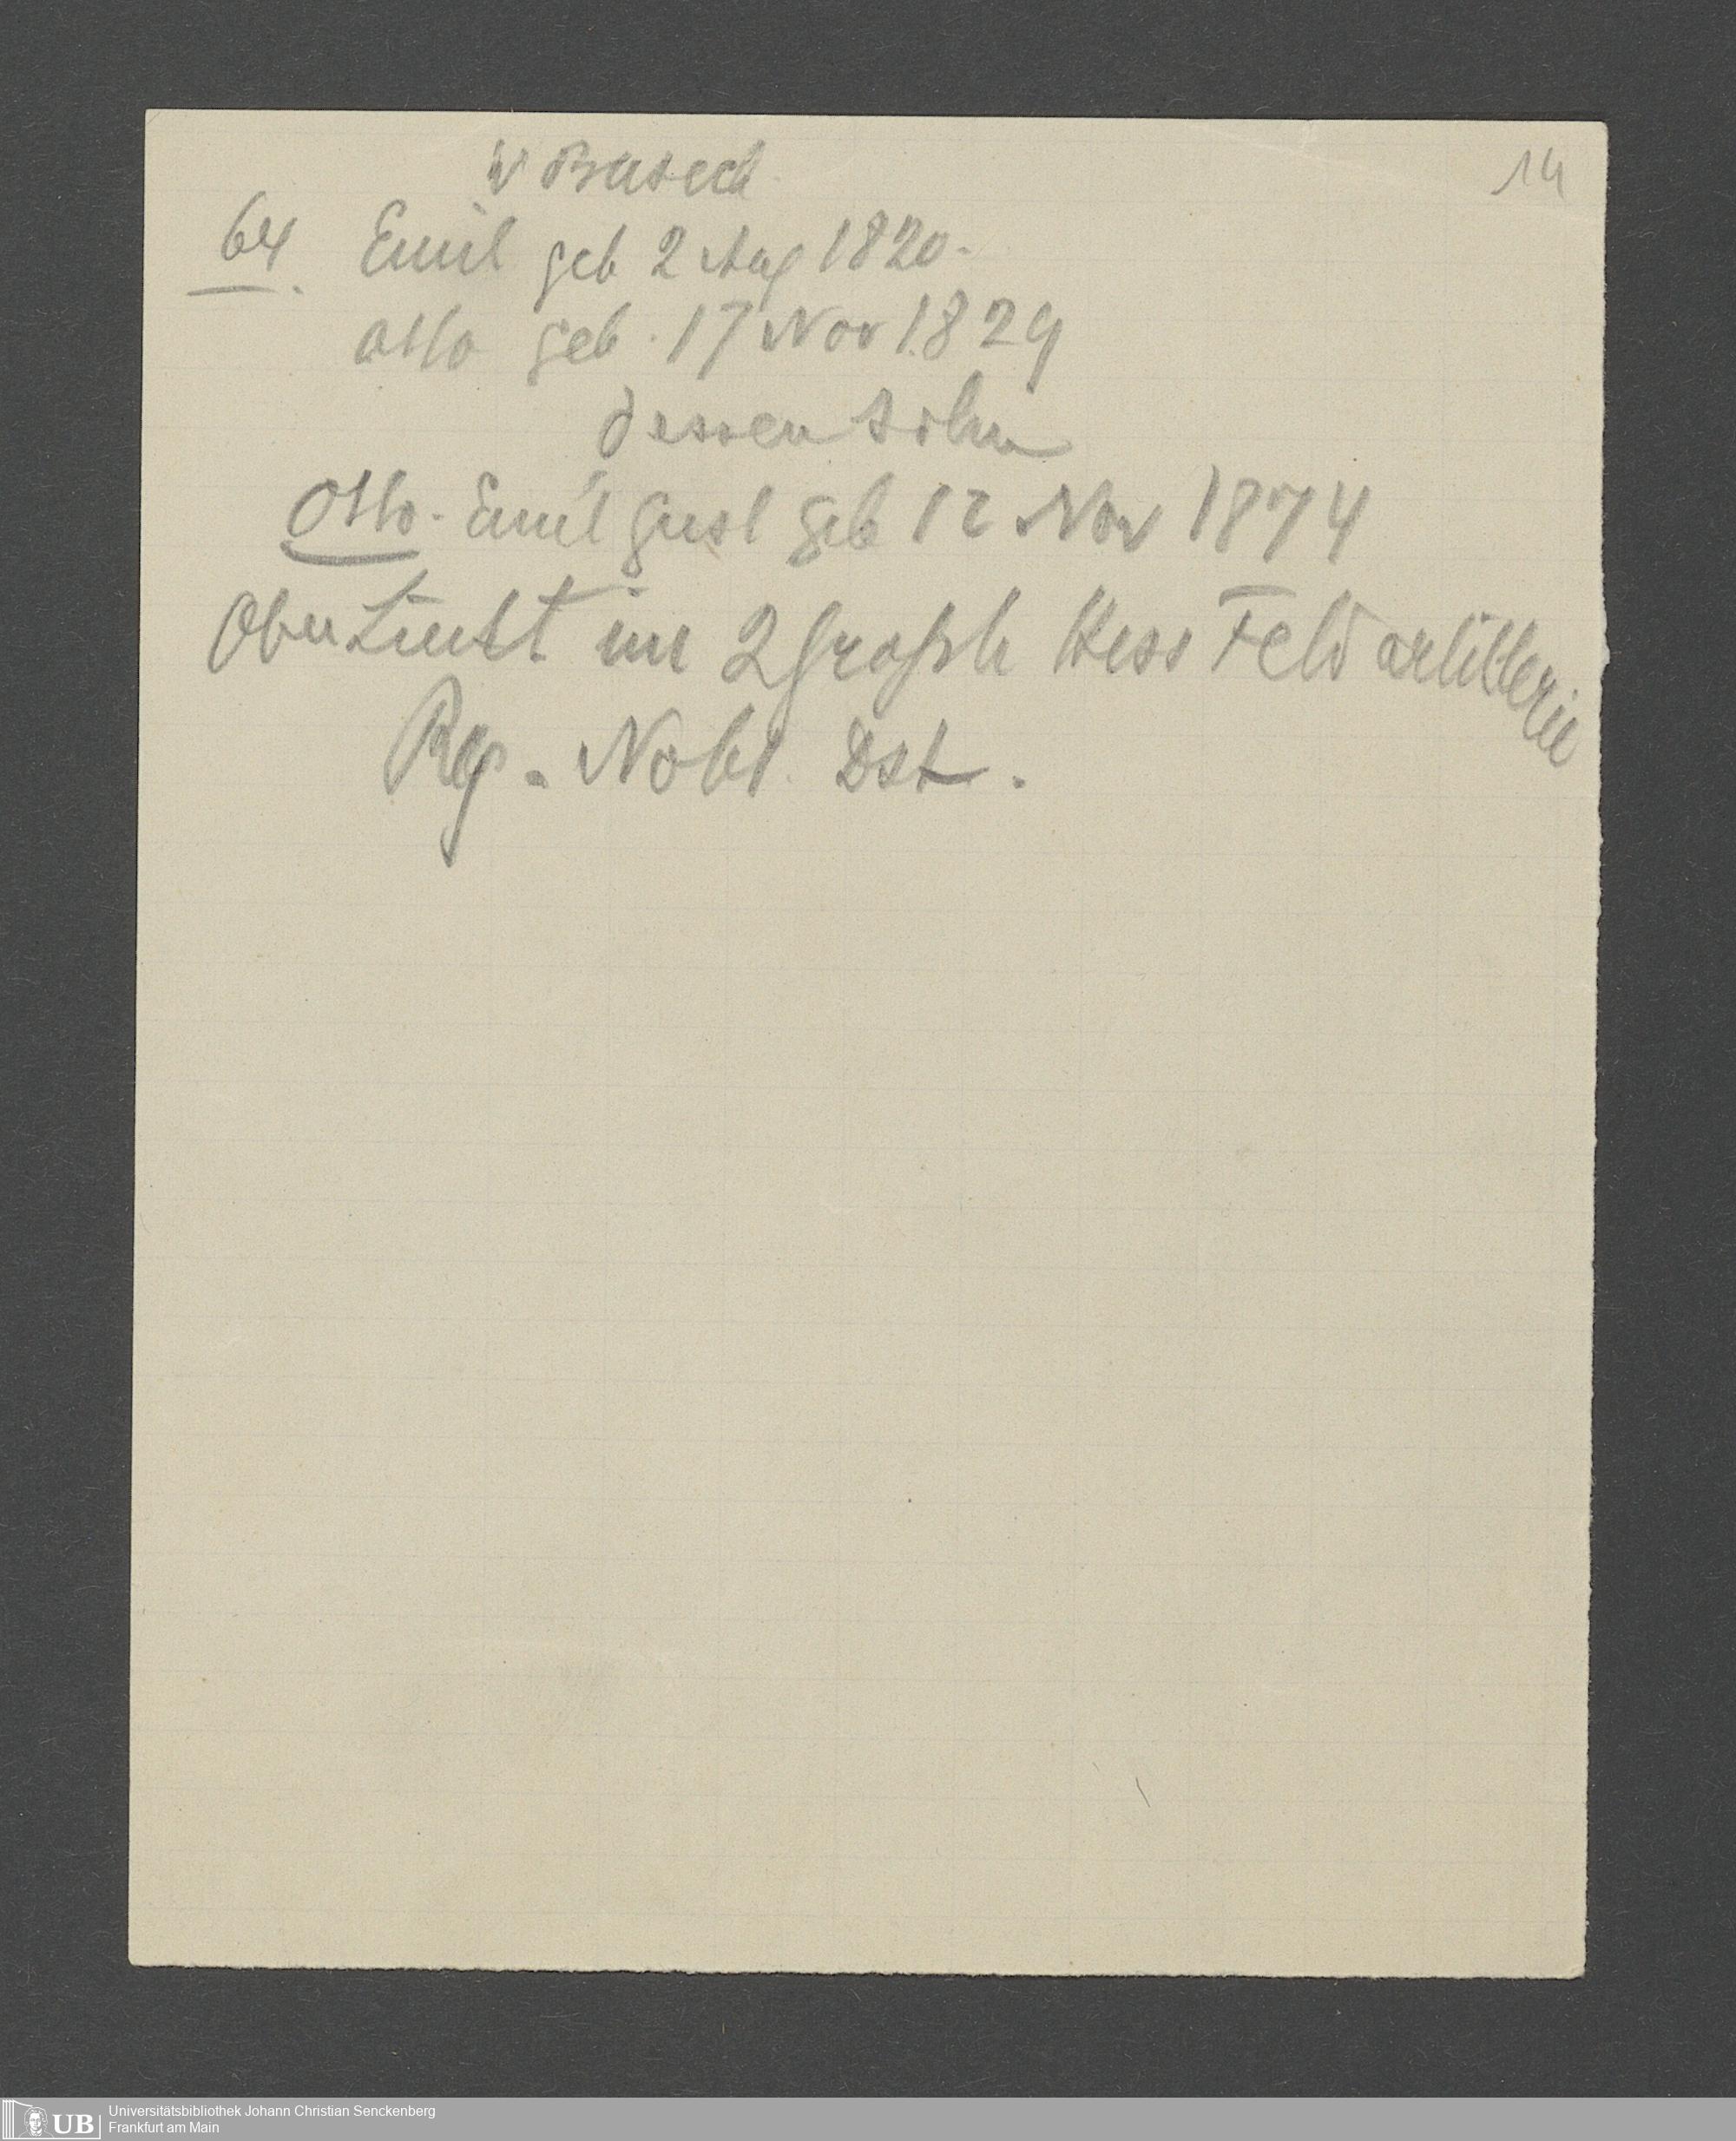 14
v Buseck
64. Emil geb 2 Aug 1820.
Otto geb. 17 Nov 1829
dessen Sohn
Otto. Emil Gust geb 12 Nov 1874
Ober Lieut im 2 Großh Hess Feldartillerie
Reg. No 61 Dst.
UB
Universitätsbibliothek Johann Christian Senckenberg
Frankfurt am Main